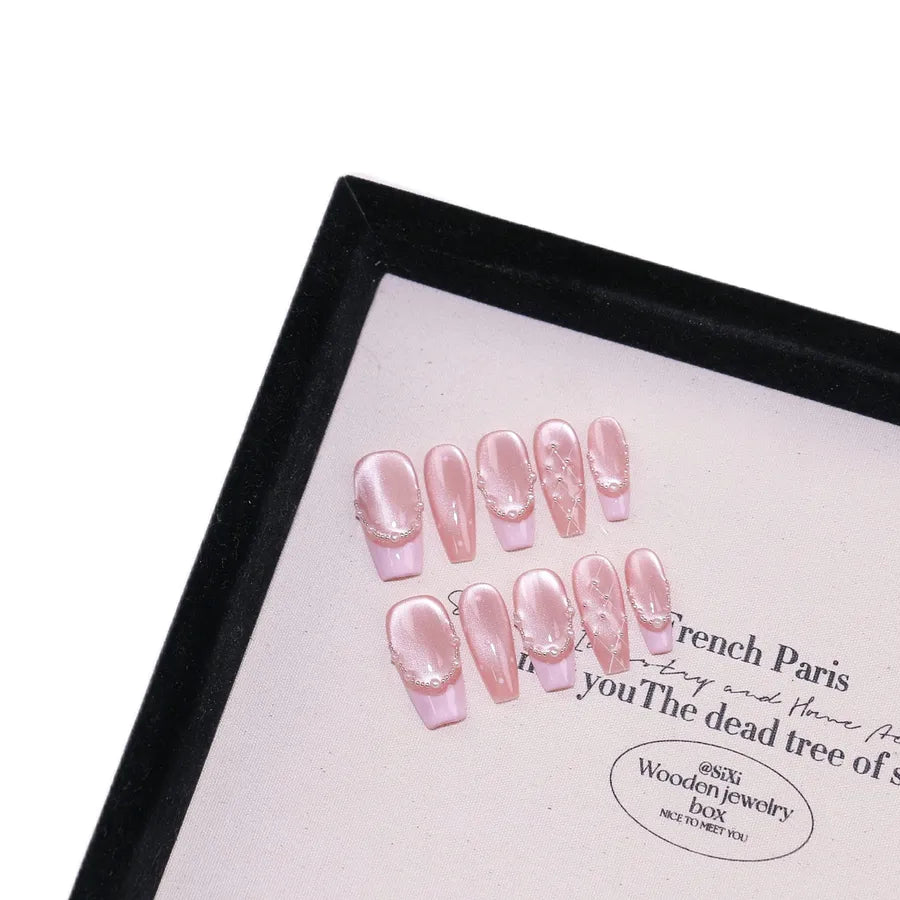 French Paris
and Home
youThe dead tree of s
@SiXi
Wooden jewelry
box
NICE TO MEET YOU